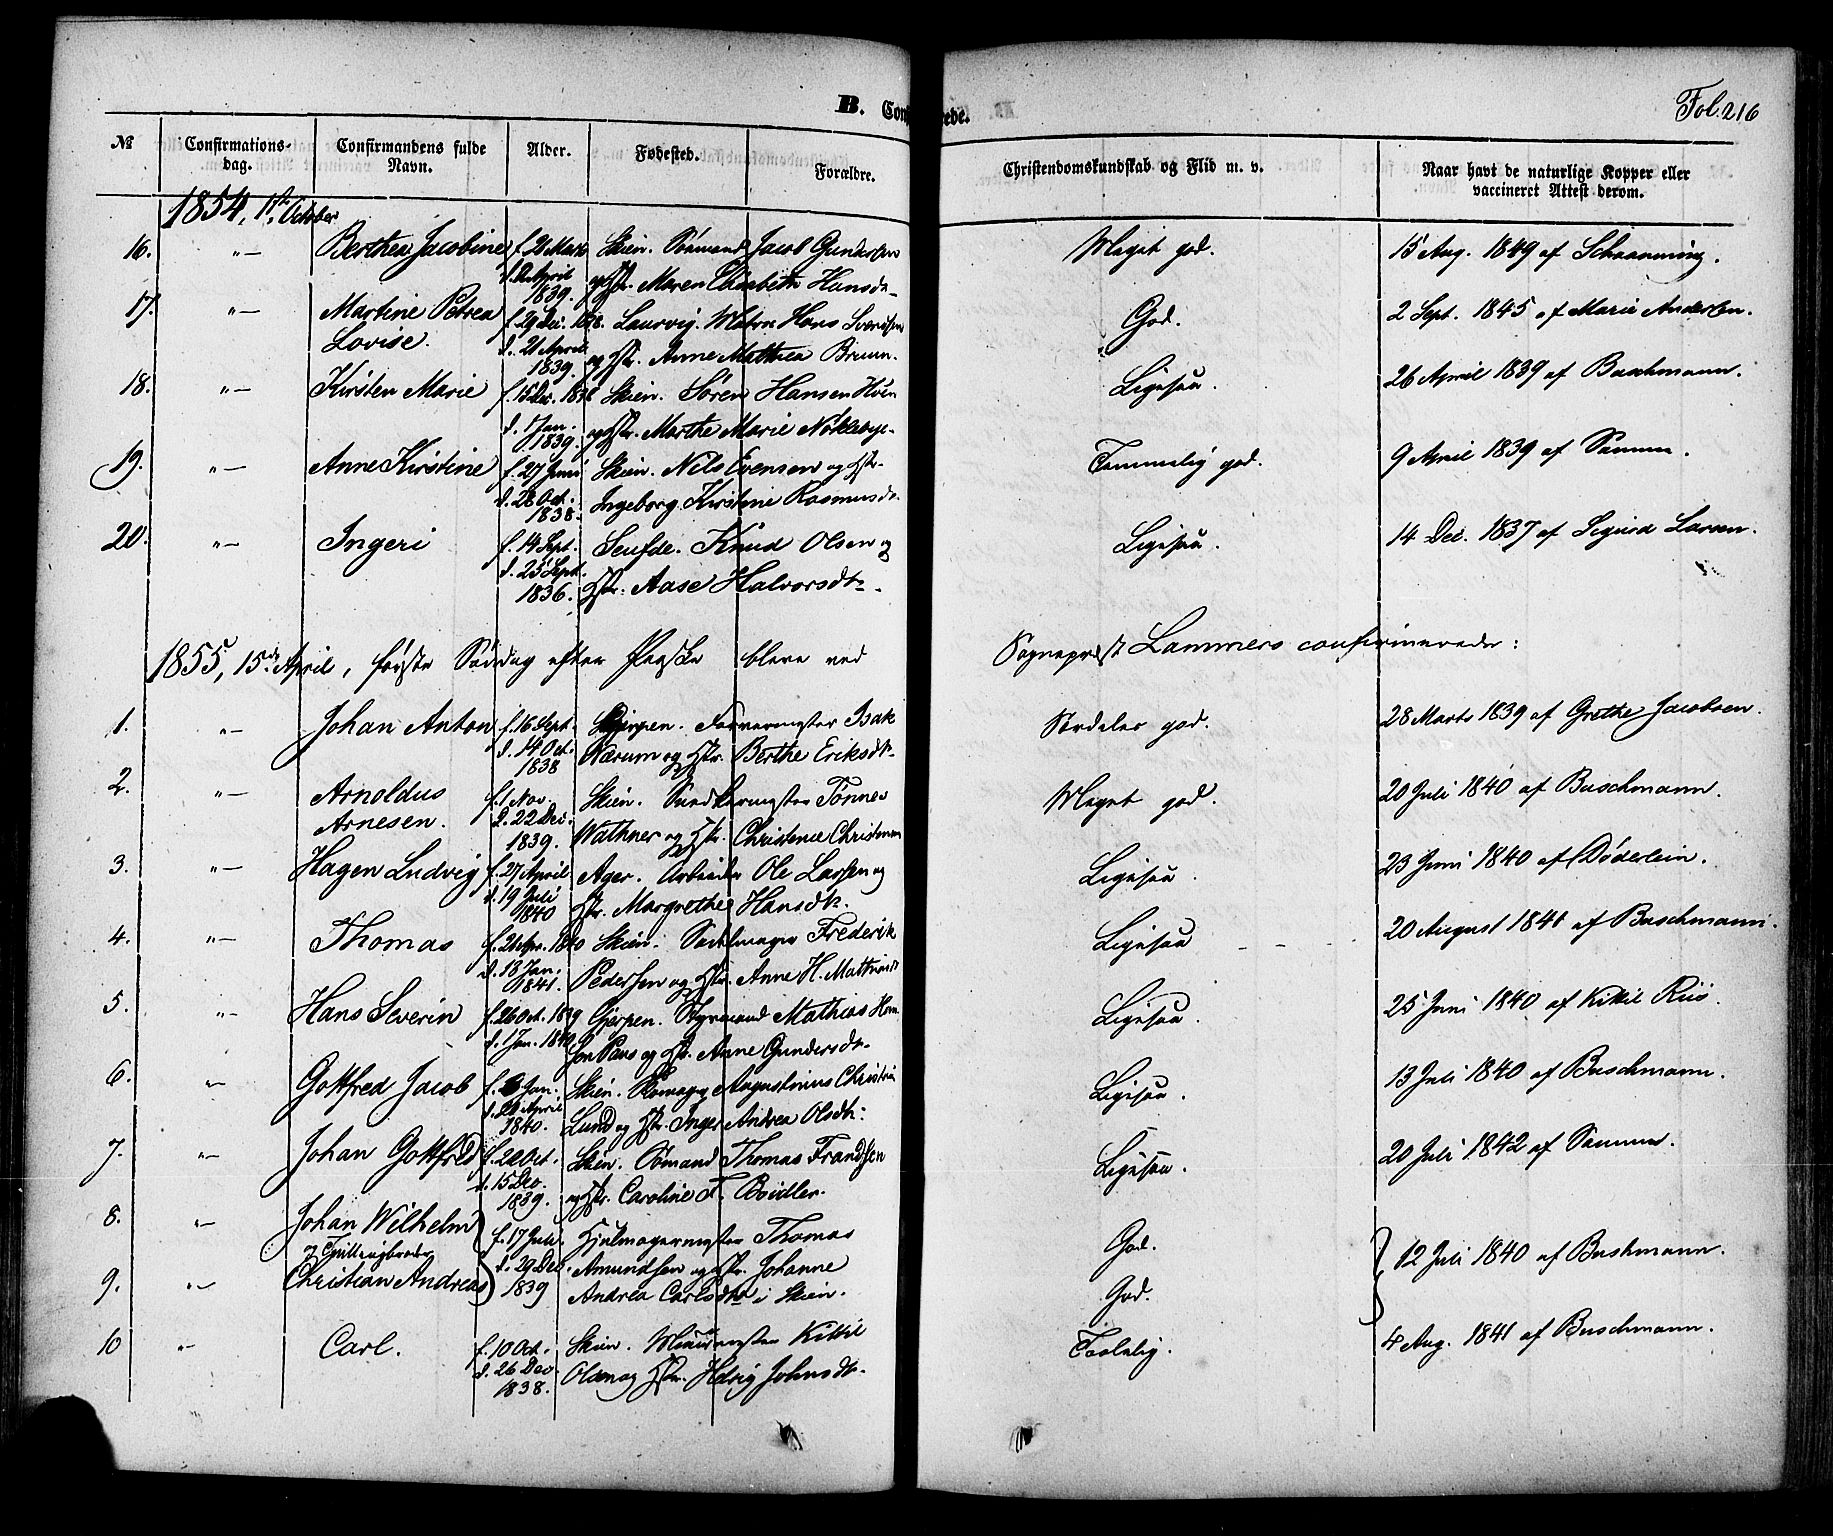 B. Conf
rede.
Fol. 216
No
Confirmations-
dag.
Confirmandens fulde
Navn.
Alder.
Fødested.
Forældre.
Christendomskundskab og Flid m. v.
Naar havt de naturlige Kopper eller
vaccineret Attest derom.
1854, 1ste October
16. "— Berthea Jacobine f. 21 Marts Skien. Sømand Jacob Gundersen Meget god. 15 Aug. 1849 af Schaanning.
d. 2 April og Hstr. Maren Elisabeth Hansdr.
1839.
17. "— Martine Petrea f. 29 Dec. 1838. Laurvig. Matros Hans Svendsen God. 2 Sept. 1845 af Marie Andersen.
Lovise. d. 21 April og Hstr. Anne Mathea Bruun.
1839.
18. "— Kirsten Marie f. 15 Dec. 1838 Skien. Søren Hansen Ligesaa. 26 April 1839 af Baschmann.
d. 1 Jan. og Hstr. Marthe Marie Nøkleby.
1839.
19. "— Anne Kirstine f. 27 Juni Skien. Nils Evensen og Hstr. Temmelig god. 9 April 1839 af Samme.
d. 28 Oct. Ingeborg Kirstine Rasmusdr.
1838.
20. "— Ingeri f. 14 Sept. Seufde. Knud Olsen og Ligesaa. 14 Dec. 1837 af Sigurd Larsen.
d. 25 Sept. Hstr. Aase Halvorsdtr.
1836.
1855, 15de April, første Søndag efter Paaske bleve ved Sognepræst Lammers confirmerede:
1. "— Johan Anton f. 16 Sept. Gjerpen. Farvermester Isak Særdeles god. 28 Marts 1839 af Grethe Jacobsen.
d. 14 Oct. Nærum og Hstr. Berthe Eriksdtr.
1838
2. "— Arnoldus f. 1 Nov. Skien. Snedkermester Tønnes Meget god. 20 Juli 1840 af Buschmann.
Arnesen. d. 22 Dec. Wathner og Hstr. Christence Christensen
1839.
3. "— Hagen Ludvig f. 27 April Ager. Arbeider Ole Larsen og Ligesaa. 23 Juni 1840 af Døderlein.
d. 19 Juli Hstr. Margrethe Hansdtr.
1840
4. "— Thomas 1840 Skien. Sadelmager Frederik Ligesaa 20 August 1841 af Buschmann.
d. 13 Jan. Pedersen og Hstr. Anne H. Mathisdt
1841.
5. "— Hans Severin f. 26 Oct. 1839 Gjerpen. Styrmand Mathias Ligesaa. 25 Juni 1840 af Kittil Riis.
d. 1 Jan. 1840 Paus og Hstr. Anne Gundersdtr.
6. "— Gottfred Jacob f. 3 Jan. Skien. Skomager Augustinus Christian Ligesaa. 13 Juli 1840 af Buschmann.
d. 20 April Lund og Hstr. Inger Andrea Olsdtr.
1840.
7. "— Johan Gottfred f. 20 Oct. Skien. Sømand Thomas Frandsen Ligesaa. 20 Juli 1842 af Samme.
d. 15 Dec. og Hstr. Caroline F. Boidler.
1839.
8. "— Johan Wilhelm f. 17 Juli Hjulmagermester Thomas God. 12 Juli 1840 af Bushmann.
og Tvillingbroder d. 29 Dec. Amundsen og Hstr. Johanne
9. "— Christian Andreas 1839 Andrea Carlsdtr i Skien. God.
10 "— Carl. f. 10 Oct. Skien. Muurmester Kittil Taalelig. 4 Aug. 1841 af Buschmann.
d. 26 Dec. Olsen og Hstr. Helvig Johnsdtr.
1838.